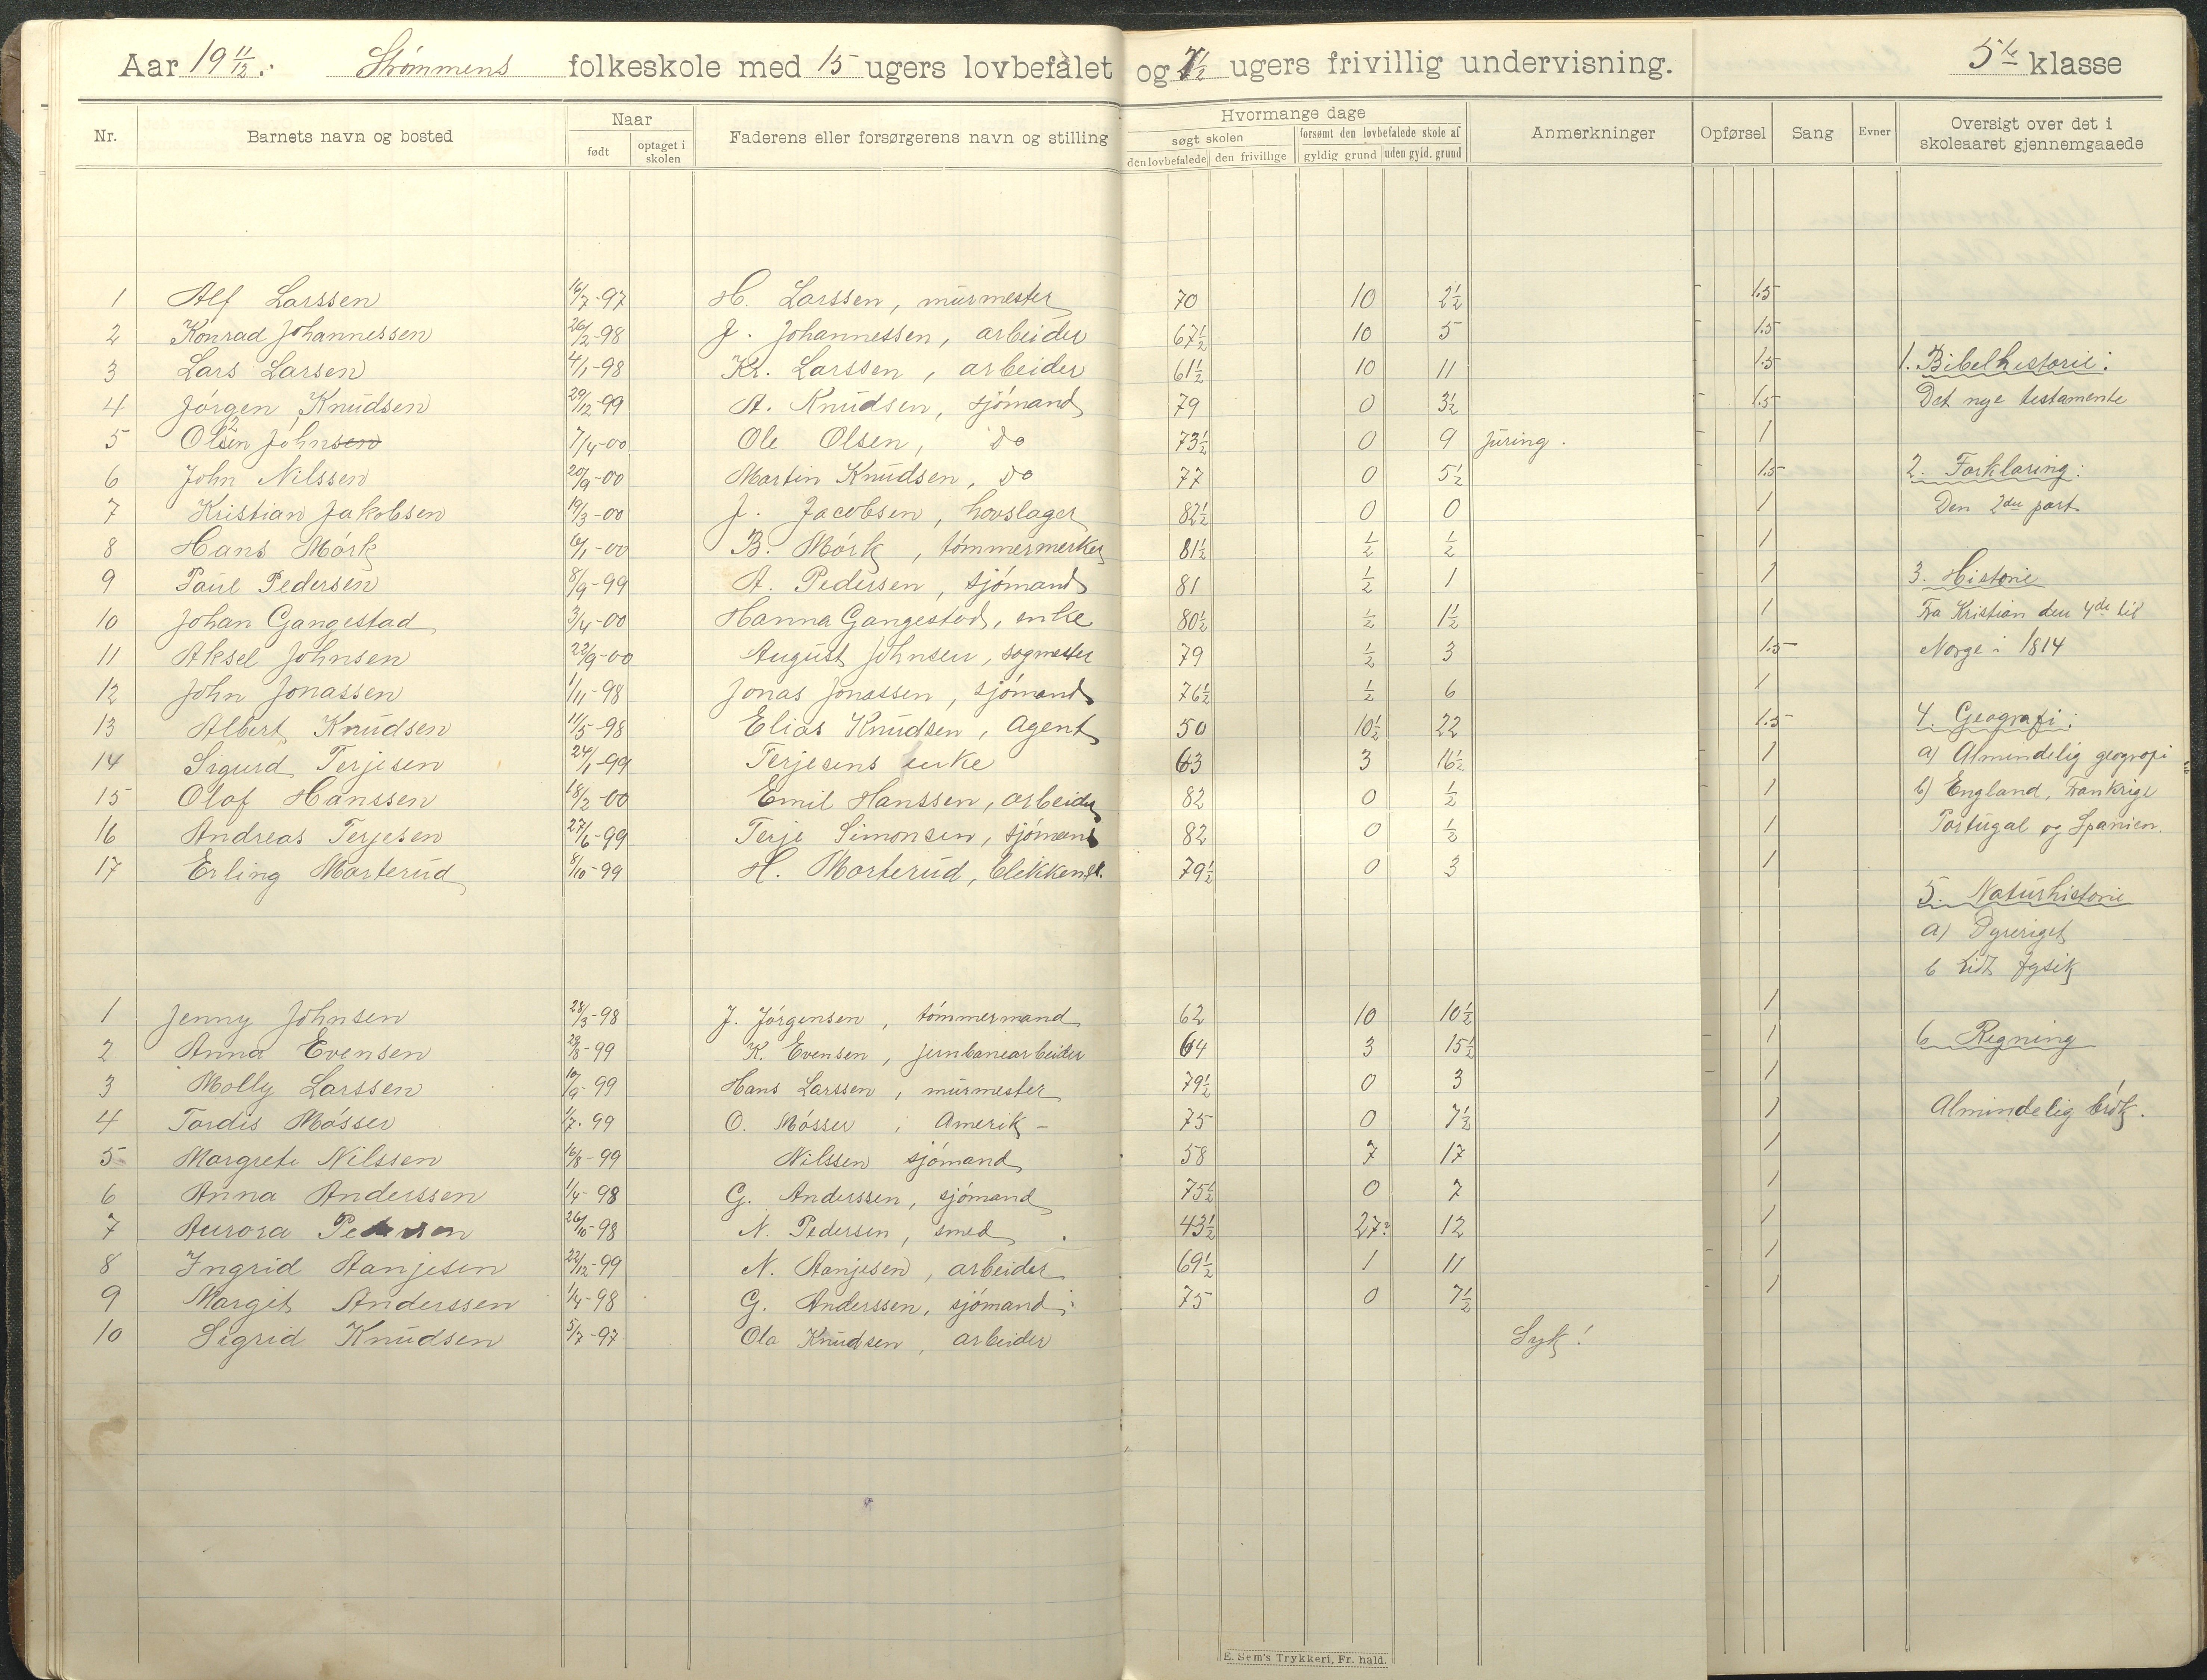 Aar 19 11/12. Strømmens folkeskole med 15 ugers lovbefalet og 7½ ugers frivillig undervisning. 5te klasse
Nr. Barnets navn og bosted Naar født optaget i skolen Faderens eller forsørgerens navn og stilling Hvormange dage søgt skolen den lovbefalede den frivillige forsømt den lovbefalede skole af gyldig grund uden gyld. grund Anmerkninger Opførsel Sang Evner Oversigt over det i skoleaaret gjennemgaaede
1 Alf Larssen 16/7-97 H. Larssen, murmester 70 10 2½ 1.5
2 Konrad Johannessen 26/2-98 J. Johannessen, arbeider 67½ 10 5 1.5
3 Lars Larsen 4/1-98 Kr. Larssen, arbeider 61½ 10 11 1.5 1. Bibelhistorie:
4 Jörgen Knudsen 29/12-99 A. Knudsen, sjömand 79 0 3½ 1.5 Det nye testamente
5 Olsen John 7/4-00 Ole Olsen, do 73½ 0 9 Juring. 1
6 John Nilssen 20/9-00 Martin Knudsen, do 77 0 5½ 1.5 2. Forklaring:
7 Kristian Jakobsen 19/3-00 J. Jacobsen, hovslager 82½ 0 0 1 Den 2den part
8 Hans Mörk 6/1-00 B. Mörk, tömmermerker 81½ ½ ½ 1
9 Paul Pedersen 8/9-99 A. Pedersen, sjömand 81 ½ 1 1 3. Historie
10 Johan Gangestad 3/4-00 Hanna Gangestad, enke 80½ ½ 1½ 1 Fra Kristian den 4de til
11 Aksel Johnsen 22/9-00 August Johnsen, sagmester 79 ½ 3 1.5 Norge i 1814
12 John Jonassen 1/11-98 Jonas Jonassen, sjömand 76½ ½ 6 1
13 Albert Knudsen 11/5-98 Elias Knudsen, Agent 50 10½ 22 1.5 4. Geografi:
14 Sigurd Terjesen 24/1-99 Terjesens enke 63 3 16½ 1 a) Almindelig geografi
15 Olaf Hanssen 18/2-00 Emil Hanssen, arbeider 82 0 ½ 1 b) England, Frankrige
16 Andreas Terjesen 27/6-99 Terje Simonsen, sjömand 82 0 ½ 1 Portugal og Spanien.
17 Erling Morterud 8/10-99 H. Morterud, 79½ 0 3 1
5. Naturhistorie
a) Dyreriget
b Lidt fysik
1 Jenny Johnsen 28/3-98 J. Jörgensen, tömmermand 62 10 10½ 1
2 Anna Evensen 29/8-99 K. Evensen, jernbanearbeider 64 3 15½ 1 6 Regning
3 Molly Larssen 10/9-99 Hans Larssen, murmester 79½ 0 3 1
4 Tordis Mösser 1/7-99 O. Mösser i Amerik- 75 0 7½ 1 Almindelig brök.
5 Margrete Nilssen 16/8-99 Nilssen sjömand 58 7 17 1
6 Anna Anderssen 1/4-98 G. Anderssen, sjömand 75½ 0 7 1
7 Aurora Pedersen 26/10-98 N. Pedersen, smed 43½ 27? 12 1
8 Ingrid Aanjesen 22/12-99 N. Aanjesen, arbeider 69½ 1 11 1
9 Margit Anderssen 1/4-98 G. Anderssen, sjömand 75 0 7½ 1
10 Sigrid Knudsen 5/7-97 Ola Knudsen, arbeider Syk!
E. Sem's Trykkeri, Fr. hald.